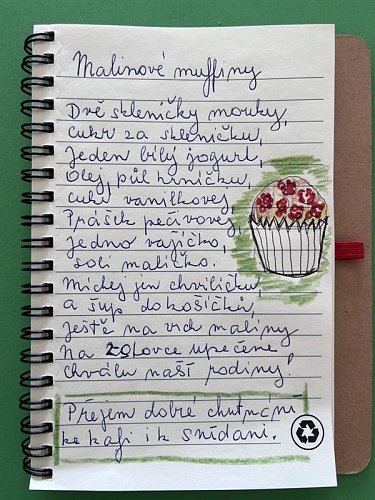 Malinové muffiny
Dvě skleničky mouky,
cukr za skleničku,
jeden bílý jogurt,
Olej půl hrníčku,
cukr vanilkovej,
Prášek pečivovej,
jedno vajíčko,
soli maličko.
Míchej jen chviličku,
a šup do košíčků,
ještě na vrch maliny
Na 20lovce upečene
chválu naší rodiny!
Přejem dobré chutnání
ke kafi i k snídani.